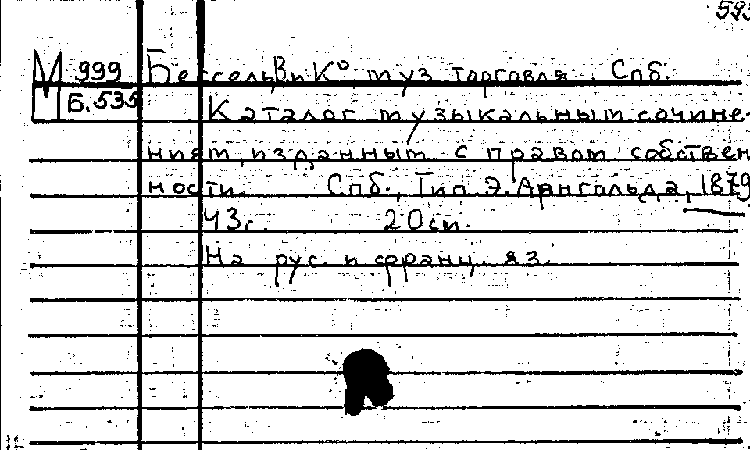 593
М 999 Бессель В и К° муз торговля. Спб.
Б.535 Каталог музыкальным сочине-
ниям, изданным с правом собствен
ности. Спб., Тип Э. Арнгольда, 1879
43с. 20см.
На рус. и франц. яз.